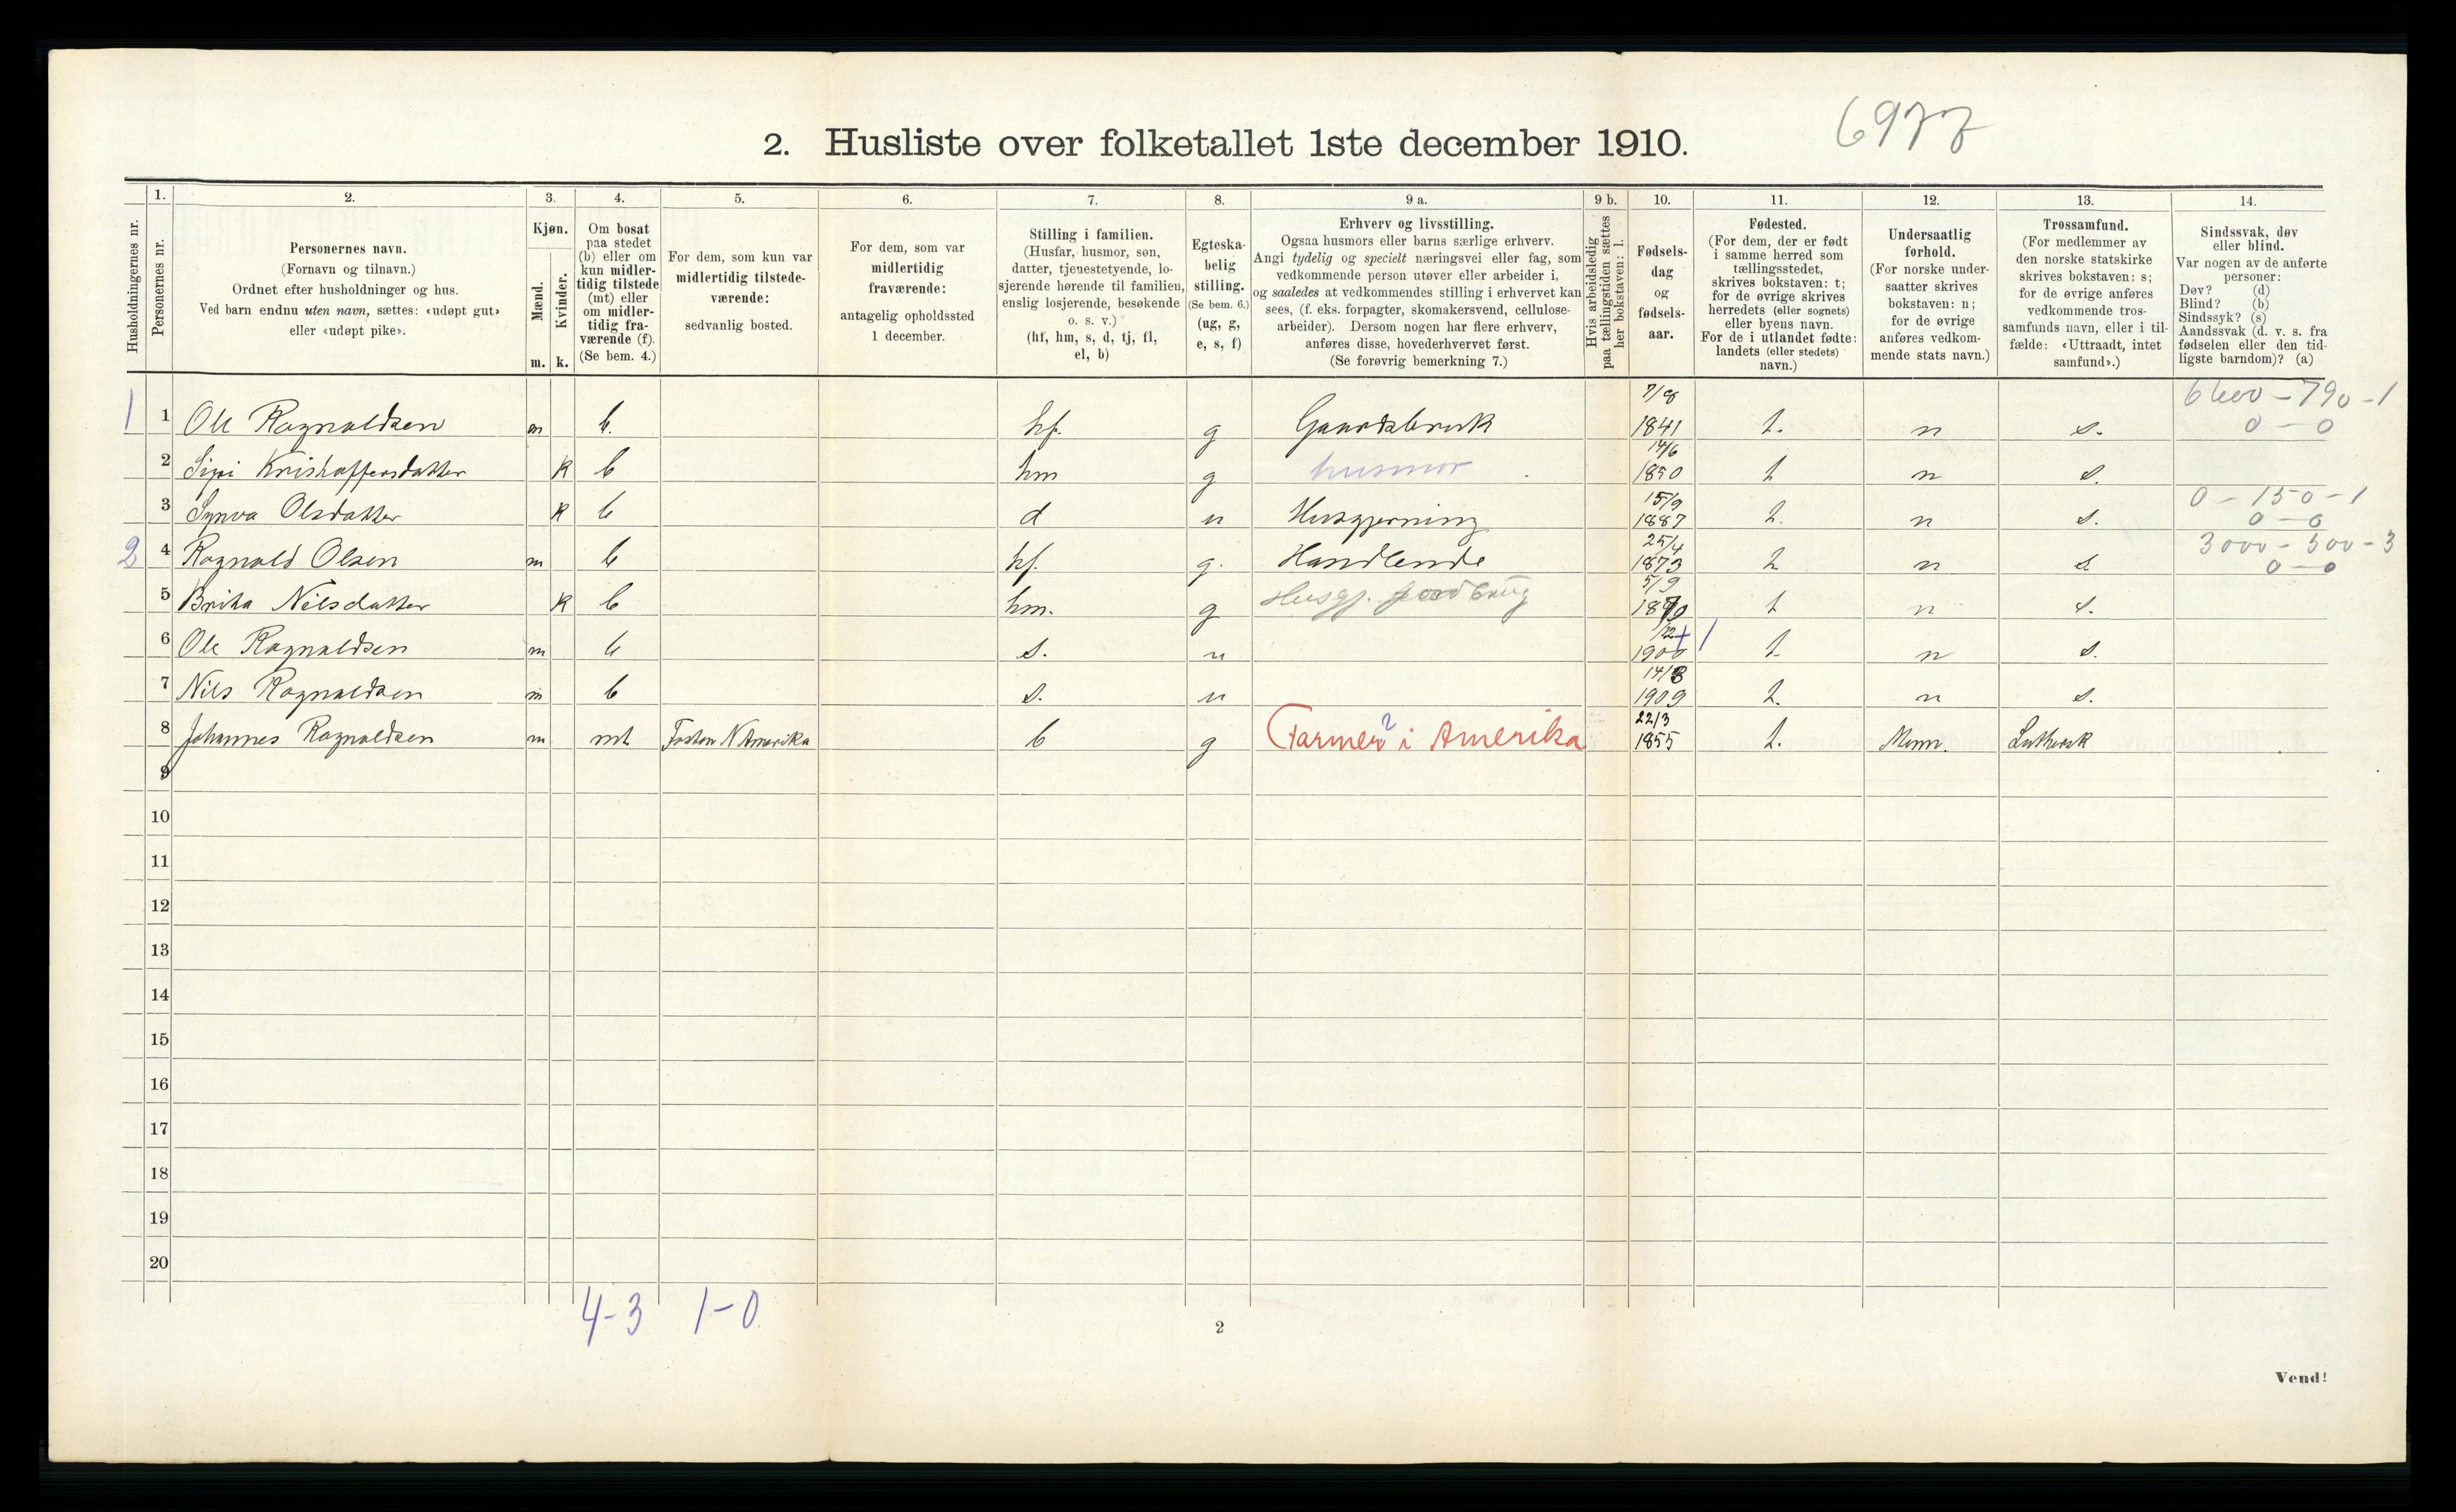 2. Husliste over folketallet 1ste december 1910.
6977
Husholdningernes nr.
1.
Personernes nr.
2.
Personernes navn.
(Fornavn og tilnavn.)
Ordnet efter husholdninger og hus.
Ved barn endnu uten navn, sættes: «udøpt gut»
eller «udøpt pike».
3.
Kjøn.
Mænd.
Kvinder.
m. k.
4.
Om bosat
paa stedet
(b) eller om
kun midler-
tidig tilstede
(mt) eller
om midler-
tidig fra-
værende (f).
(Se bem. 4.)
5.
For dem, som kun var
midlertidig tilstede-
værende:
sedvanlig bosted.
6.
For dem, som var
midlertidig
fraværende:
antagelig opholdssted
1 december.
7.
Stilling i familien.
(Husfar, husmor, søn,
datter, tjenestetyende, lo-
sjerende hørende til familien,
enslig losjerende, besøkende
o. s. v.)
(hf, hm, s, d, tj, fl,
el, b)
8.
Egteska-
belig
stilling.
(Se bem. 6.)
(ug, g,
e, s, f)
9 a.
Erhverv og livsstilling.
Ogsaa husmors eller barns særlige erhverv.
Angi tydelig og specielt næringsvei eller fag, som
vedkommende person utøver eller arbeider i,
og saaledes at vedkommendes stilling i erhvervet kan
sees, (f. eks. forpagter, skomakersvend, cellulose-
arbeider). Dersom nogen har flere erhverv,
anføres disse, hovederhvervet først.
(Se forøvrig bemerkning 7.)
9 b.
Hvis arbeidsledig
paa tællingstiden sættes
her bokstaven: l.
10.
Fødsels-
dag
og
fødsels-
aar.
11.
Fødested.
(For dem, der er født
i samme herred som
tællingsstedet,
skrives bokstaven: t;
for de øvrige skrives
herredets (eller sognets)
eller byens navn.
For de i utlandet fødte:
landets (eller stedets)
navn.)
12.
Undersaatlig
forhold.
(For norske under-
saatter skrives
bokstaven: n;
for de øvrige
anføres vedkom-
mende stats navn.)
13.
Trossamfund.
(For medlemmer av
den norske statskirke
skrives bokstaven: s;
for de øvrige anføres
vedkommende tros-
samfunds navn, eller i til-
fælde: «Uttraadt, intet
samfund».)
14.
Sindssvak, døv
eller blind.
Var nogen av de anførte
personer:
Døv? (d)
Blind? (b)
Sindssyk? (s)
Aandssvak (d. v. s. fra
fødselen eller den tid-
ligste barndom)? (a)
1 1 Ole Ragnaldsen m b. hf. g Gaardsbruk 7/8 1841 t. n s. 6600 - 790 - 1
0 - 0
2 Sigri Kristoffersdatter k b hm g husmor 14/6 1850 t n s.
3 Synva Olsdatter k b d u Husgjerning 15/9 1887 t. n s. 0 - 150 - 1
0 - 0
2 4 Ragnald Olsen m b hf. g. Handlende 25/4 1873 t n s 3000 - 500 - 3
0 - 0
5 Brita Nilsdatter k b hm. g Husgj. jordbrug 5/9 1870 t n s.
6 Ole Ragnaldsen m b s. u 1900 t n s.
7 Nils Ragnaldsen m b s. u 14/8 1909 t. n s.
8 Johannes Ragnaldsen m mt Foston N Amerika b g Farmer i Amerika 22/3 1855 t. Minn. Luthersk
9
10
11
12
13
14
15
16
17
18
19
20
4-3 1-0
2
Vend!